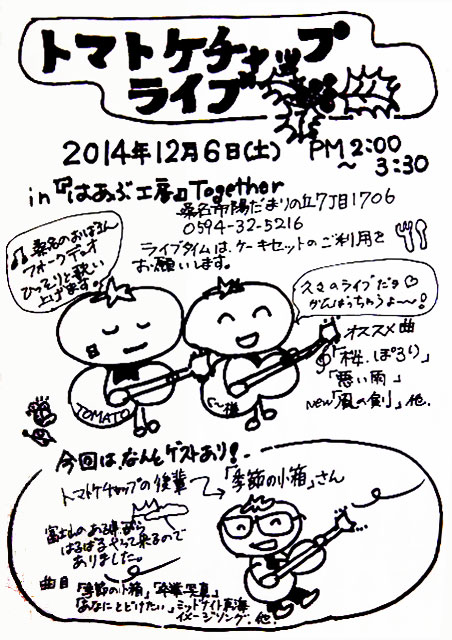 トマトケチャップ
ライブ
2014年12月6日(土) PM 2:00
～ 3:30
in『はあぶ工房』Together
桑名市陽だまりの丘7丁目1706
0594-32-5216
ライブタイムは、ケーキセットのご利用を
お願いします。
桑名のおばさん
フォークデュオ
ひっそりと歌い
上げます
久々のライブだョ
がんばっちゃうよ～!
オススメ曲
「桜、ぽろり」
「悪い雨」
NEW「風の剣」他.
TOMATO
今回は、なんとゲストあり!
トマトケチャップの後輩 → 「季節の小箱」さん
富士山のある県から
はるばるやって来るので
ありました。
曲目 「季節の小箱」「卒業写真」
「あなたにとどけたい」ミッドナイト東海
イメージソング. 他.